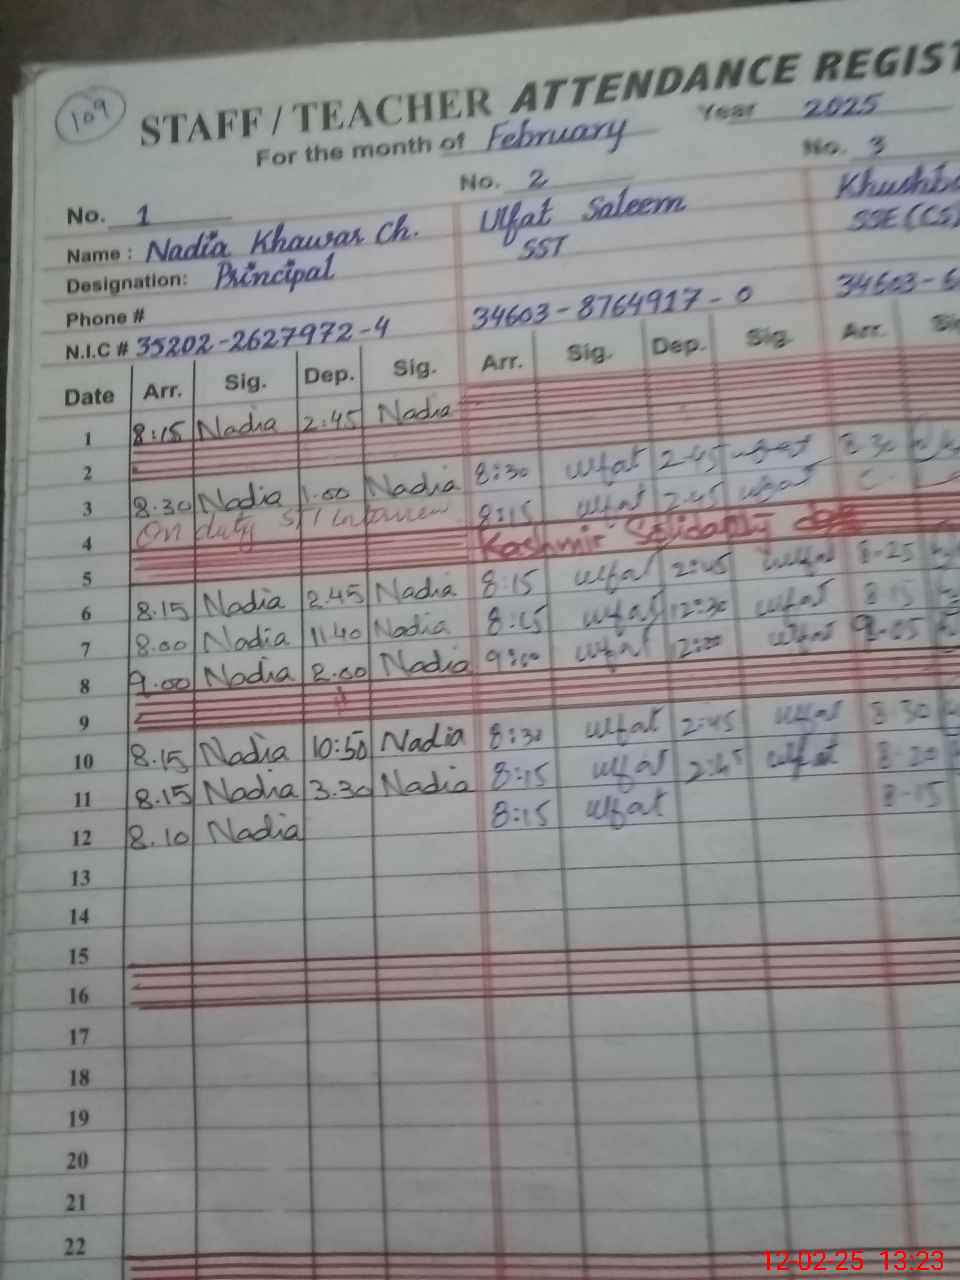 109
STAFF / TEACHER ATTENDANCE REGIST
For the month of February Year 2025
No. 1 No. 2 No. 3
Name : Nadia Khawar Ch. Ulfat Saleem Khushb
Designation: Principal SST SSE (CS)
Phone #
N.I.C # 35202-2627972-4 34603-8764917-0 34603-6
Date Arr. Sig. Dep. Sig. Arr. Sig. Dep. Sig. Arr. Si
1 8:15 Nadia 2:45 Nadia
2
3 8.30 Nadia 1.00 Nadia 8:30 Ulfat 2:45 Ulfat 8 30
4 On duty STI Interview 8:15 Ulfat 2:45 Ulfat
5 Kashmir Solidarity day
6 8.15 Nadia 2.45 Nadia 8:15 Ulfat 2:45 Ulfat 8-25
7 8.00 Nadia 11.40 Nadia 8:15 Ulfat 12:30 Ulfat 8 15
8 9.00 Nadia 2.00 Nadia 9:00 Ulfat 2:00 Ulfat 9-05
9
10 8.15 Nadia 10:50 Nadia 8:30 Ulfat 2:45 Ulfat 8 30
11 8.15 Nadia 3.30 Nadia 8:15 Ulfat 2:45 Ulfat 8-20
12 8.10 Nadia 8:15 Ulfat 8-15
13
14
15
16
17
18
19
20
21
22
12-02-25 13:23